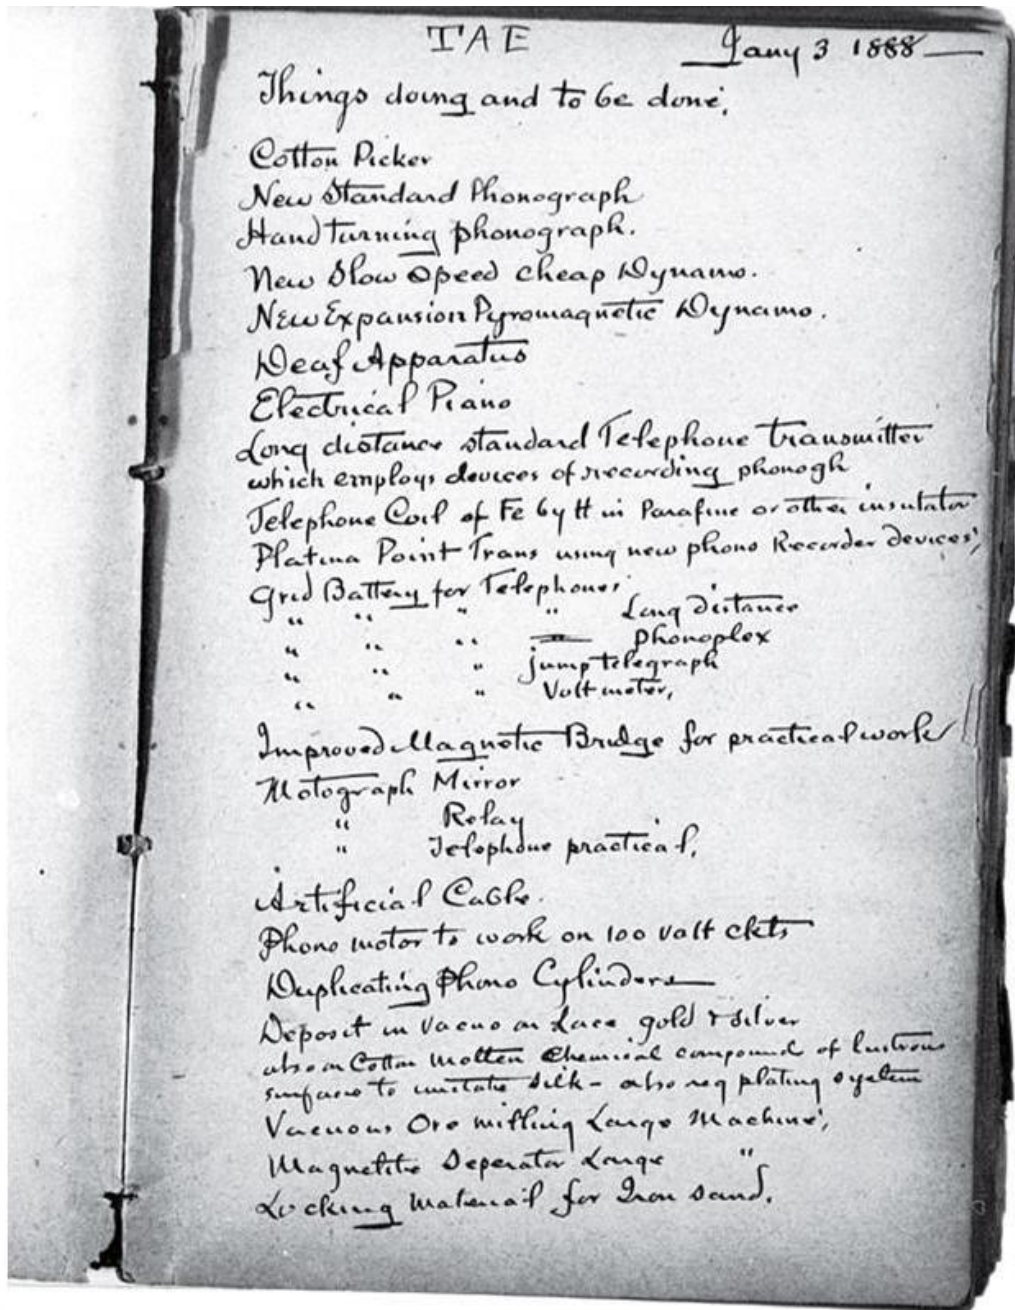 TAE Jany 3 1888
Things doing and to be done,
Cotton Picker
New Standard Phonograph
Hand turning phonograph.
New Slow Speed cheap Dynamo.
New Expansion Pyromagnetic Dynamo.
Deaf Apparatus
Electrical Piano
Long distance standard Telephone transmitter
which employs devices of recording phonogh
Telephone Coil of Fe by tt in Parafine or other insulator
Platina Point Trans using new phono Recorder devices;
Grid Battery for Telephones;
" " " " Long distance
" " " Phonoplex
" " " jump telegraph
" " " Volt meter,
Improved Magnetic Bridge for practical work
Motograph Mirror
" Relay
" Telephone practical,
Artificial Cable.
Phono motor to work on 100 volt ckts
Duplicating Phono Cylinders
Deposit in vacuo on Lace gold & silver
also on Cotton molten chemical compound of lustrous
surface to imitate silk - also reg plating system
Vacuous Ore milling Large Machine;
Magnetite Seperator Large "
Locking material for Iron sand.